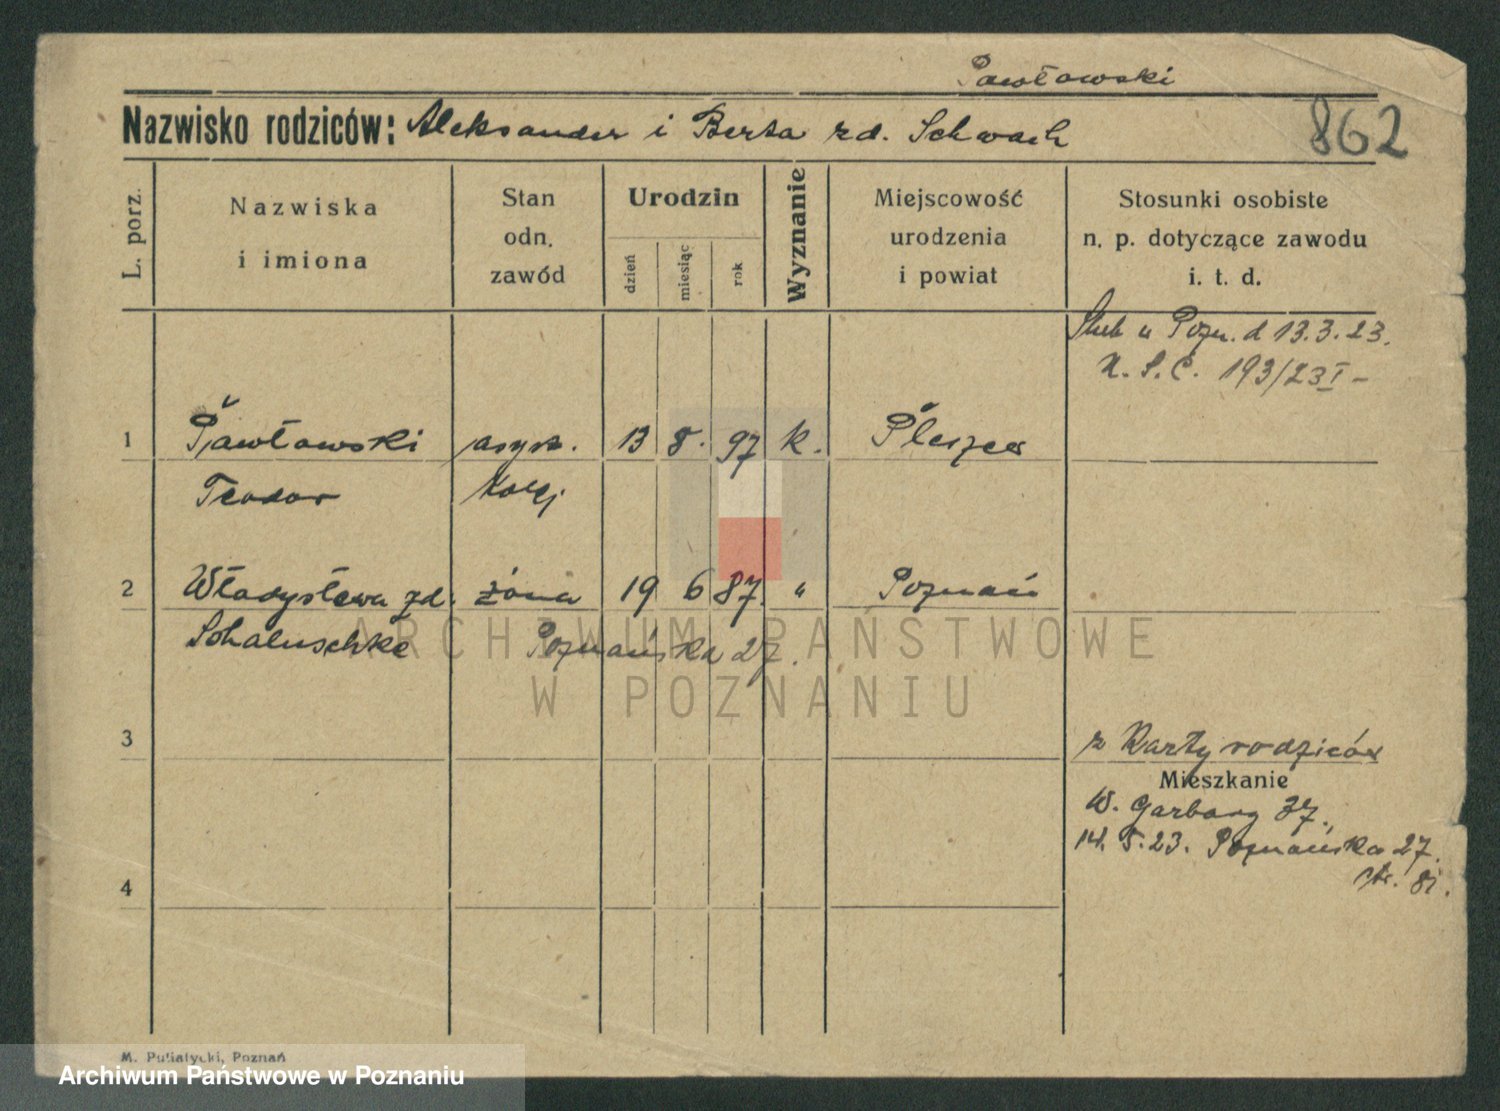 Pawłowski
Nazwisko rodziców: Aleksander i Berta zd. Schwach
862
L. porz.
Nazwiska
i imiona
Stan
odn.
zawód
Urodzin
dzień
miesiąc
rok
Wyznanie
Miejscowość
urodzenia
i powiat
Stosunki osobiste
n. p. dotyczące zawodu
i. t. d.
Ślub w Pozn. d 13.3.23.
N. S. C. 193/23 I -
1 Pawłowski asyst. 13 8. 97 k. Pleszew
Teodor kolej
2 Władysława zd. żona 19 6 87. " Poznań
Schaluschke Poznańska 27.
3
z Karty rodziców
Mieszkanie
W. Garbary 37.
14. 5. 23. Poznańska 27.
4
M. Putiatycki, Poznań
ARCHIWUM PAŃSTWOWE
W POZNANIU
Archiwum Państwowe w Poznaniu